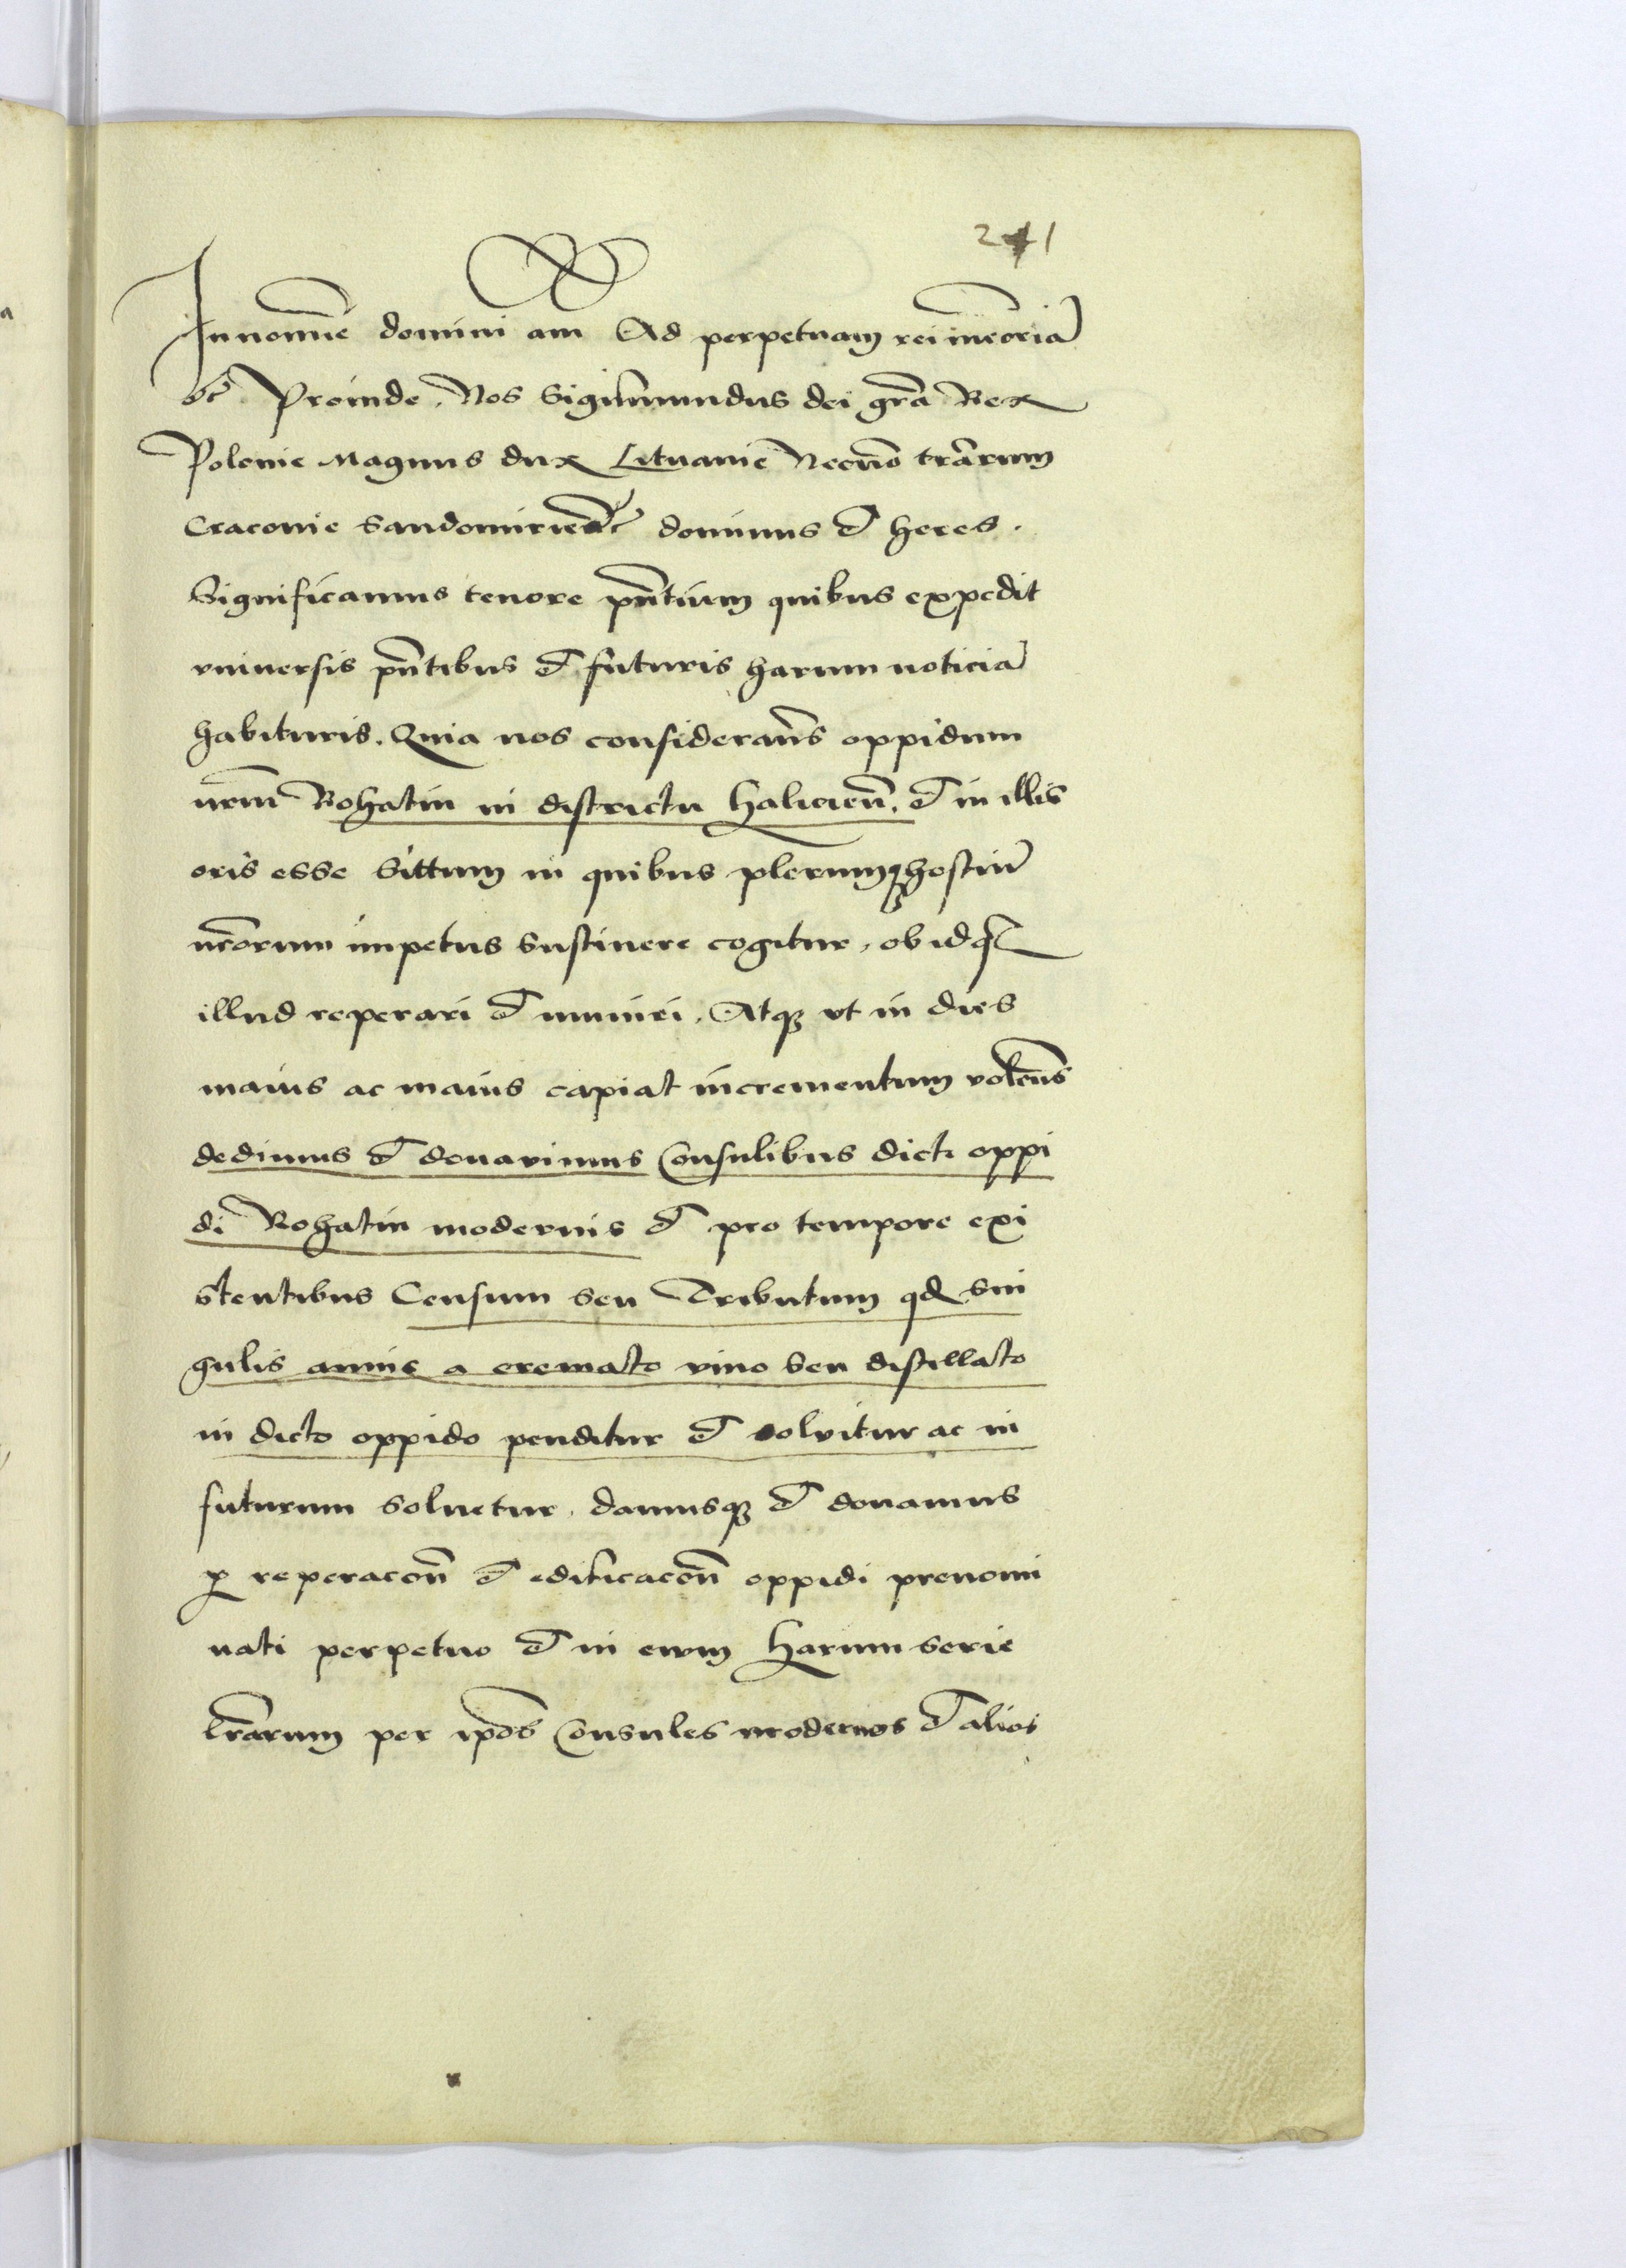 241
In nomine domini am Ad perpetuam rei meoriã
&c̃. Proinde. Nos Sigismundus dei grã Rex
Polonie Magnus dux Lituanie Necnõ trãrum
Cracouie Sandomirie &c̃ dominus et heres.
Significamus tenore pñtium quibus expedit
vniuersis pñtibus et futuris harum noticiã
habituris. Quia nos considerañs oppidum
nrm̃ Rohatin in districtu halicieñ. et in illis
oris esse Sittum in quibus plerumqȝ hostiũ
nrõrum impetus sustinere cogitur, ob idqȝ
illud reperari et muniri, Atqȝ vt in dies
maius ac maius capiat incrementum voleñs
dedimus et donauimus Consulibus dicti oppi
di Rohatin modernis et pro tempore exi
stentibus Censum seu Tributum qd sin
gulis annis a cremato vino seu distillato
in dicto oppido penditur et soluitur ac in
futurum soluetur. damusqȝ et donamus
p reperacoñ et edificacoñ oppidi prenomi
nati perpetuo et in ewm harum serie
lrãrum per ipõs Consules modernos et alios